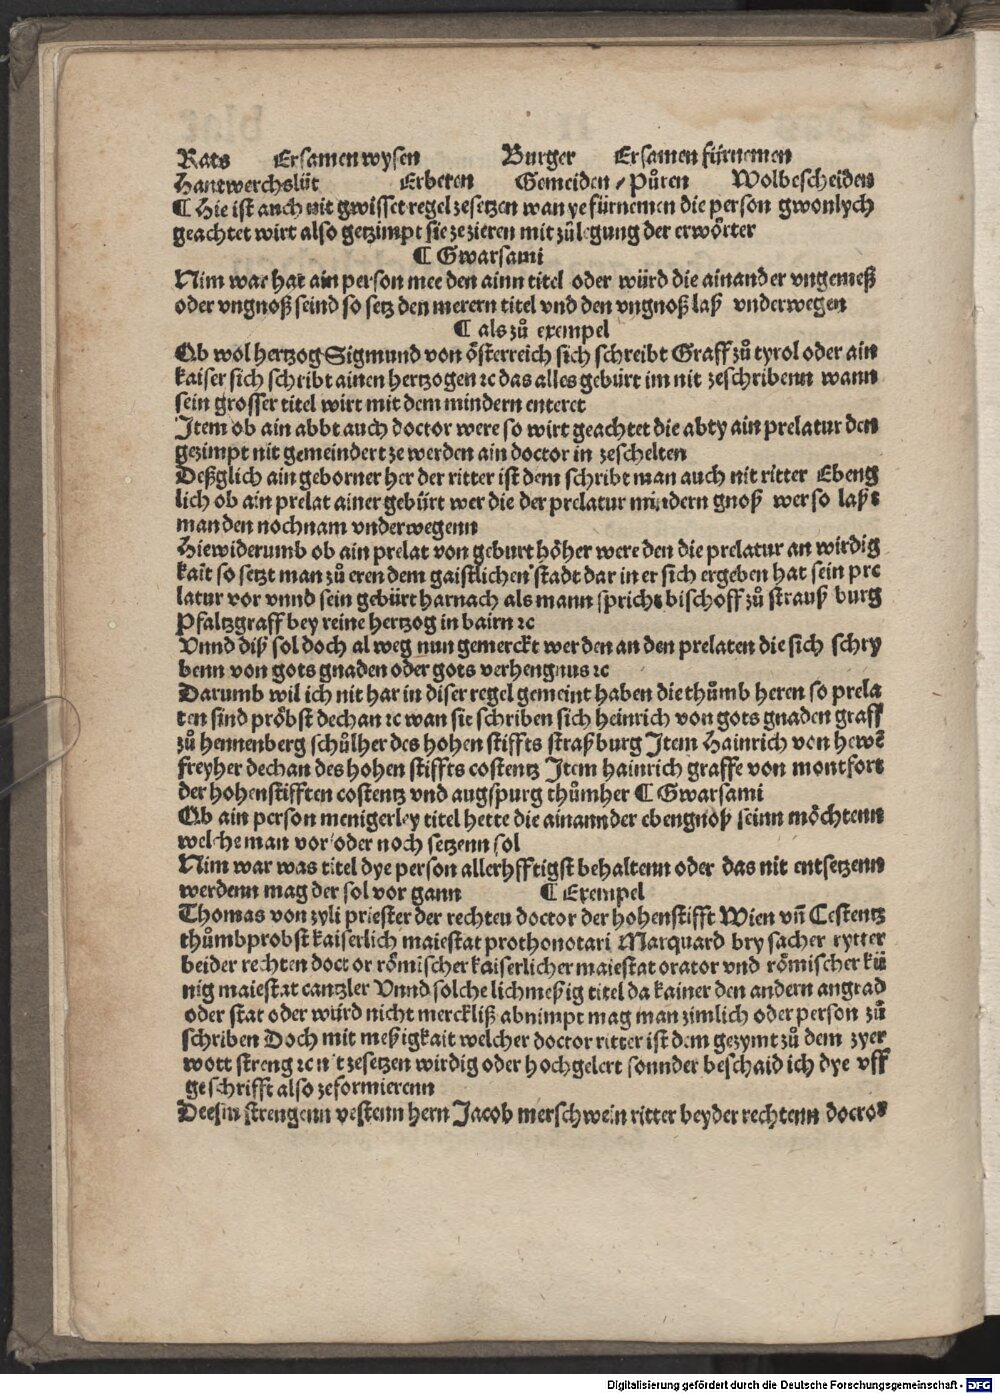 Rats Ersamen wysen Burger Ersamen fürnemen
Hantwerchslüt Erberen Gemeiden / Půren Wolbescheiden
¶ Hie ist auch nit gwisset regel zesetzen wan ye fürnemen die person gwonlych
geachtet wirt also getzimpt sie ze zieren mit zůlegung der erwörter
¶ Gwarsami
Nim war hat ain person mee den ainn titel oder würd die ainander vngemeß
oder vngnoß seind so setz den merern titel vnd den vngnoß laß vnderwegen
¶ als zů exempel
Ob wol hertzog Sigmund von österreich sich schreibt Graff zů tyrol oder ain
kaiser sich schribt ainen hertzogen ⁊c das alles gebürt im nit zeschribenn wann
sein grosser titel wirt mit dem mindern enteret
Item ob ain abbt auch doctor were so wirt geachtet die abty ain prelatur den
gezimpt nit gemeindert ze werden ain doctor in zeschelten
Deßglich ain geborner her der ritter ist dem schribt man auch nit ritter Ebeng
lich ob ain prelat ainer gebürt wer die der prelatur mindern gnoß wer so laßt
man den nochnam vnderwegenn
Hiewiderumb ob ain prelat von geburt höher were den die prelatur an wirdig
kait so setzt man zů eren dem gaistlichen stadt dar in er sich ergeben hat sein pre
latur vor vnnd sein gebürt harnach als mann spricht bischoff zů strauß burg
Pfaltzgraff bey reine hertzog in bairn ⁊c
Vnnd diß sol doch al weg nun gemerckt werden an den prelaten die sich schry
benn von gots gnaden oder gots verhengnus ⁊c
Darumb wil ich nit har in diser regel gemeint haben die thůmb heren so prela
ten sind pröbst dechan ⁊c wan sie schriben sich heinrich von gots gnaden graff
zů hennenberg schůlher des hohen stiffts straßburg Item Hainrich von hewē
freyher dechan des hohen stiffts costentz Item hainrich graffe von montfort
der hohenstifften costentz vnd augspurg thůmher ¶ Gwarsami
Ob ain person menigerley titel hette die ainannder ebengnoß seinn möchtenn
welche man vor oder noch setzenn sol
Nim war was titel dye person allerhfftigst behaltenn oder das nit entsetzenn
werdenn mag der sol vor gann ¶ Exempel
Thomas von zyli priester der rechten doctor der hohenstifft Wien vn̄ Costentz
thůmbprobst kaiserlich maiestat prothonotari Marquard bry sacher rytter
beider rechten doctor römischer kaiserlicher maiestat orator vnd römischer kü
nig maiestat cantzler Vnnd solche lichmeßig titel da kainer den andern angrad
oder stat oder würd nicht merckliß abnimpt mag man zimlich oder person zů
schriben Doch mit meßigkait welcher doctor ritter ist dem gezymt zů dem zyer
wott streng ⁊c nit zesetzen wirdig oder hochgelert sonnder beschaid ich dye vff
geschrifft also zeformierenn
Deesm strengenn vestenn hern Jacob merschwein ritter beyder rechtenn doctor
Digitalisierung gefördert durch die Deutsche Forschungsgemeinschaft - DFG